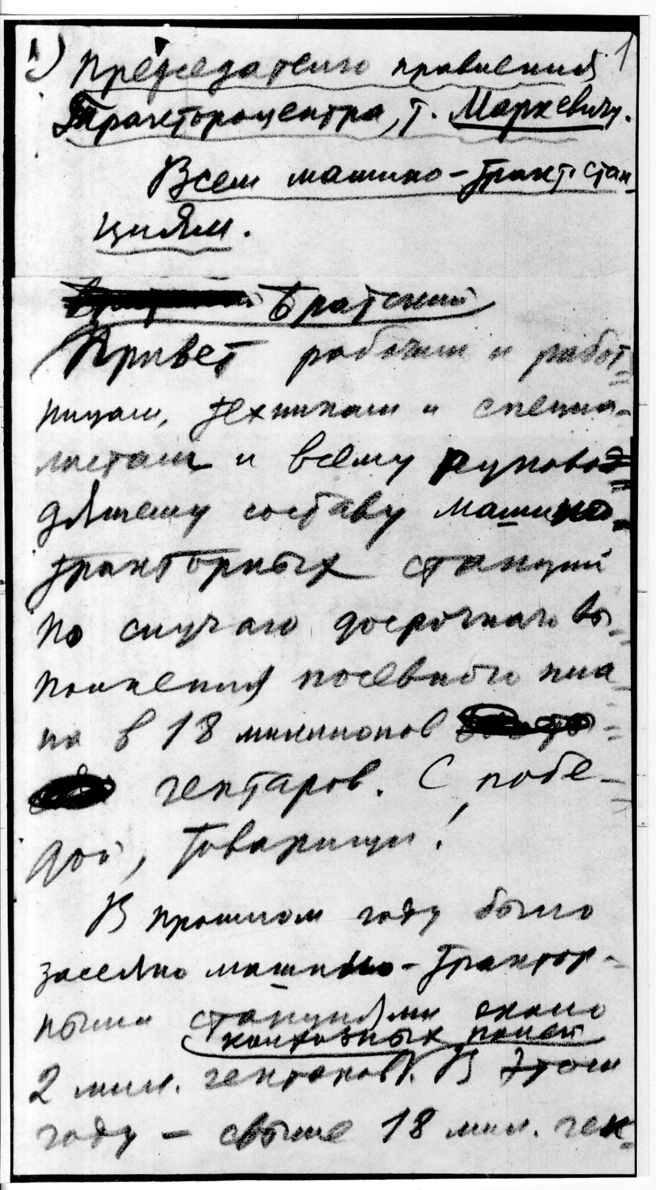 1) Председателю правления 1
Трактороцентра, т. Маркевичу.
Всем машино-тракт. стан-
циям.
Братский
Привет рабочим и работ-
ницам, техникам и специа-
листам и всему руково-
дящему составу машино-
тракторных станций
по случаю досрочного вы-
полнения посевного пла-
на в 18 миллионов
гектаров. С побе-
дой, товарищи!
В прошлом году было
засеяно машинно-трактор-
ными станциями около
колхозных полей
2 мил. гектаров. В этом
году – свыше 18 мил. гек-